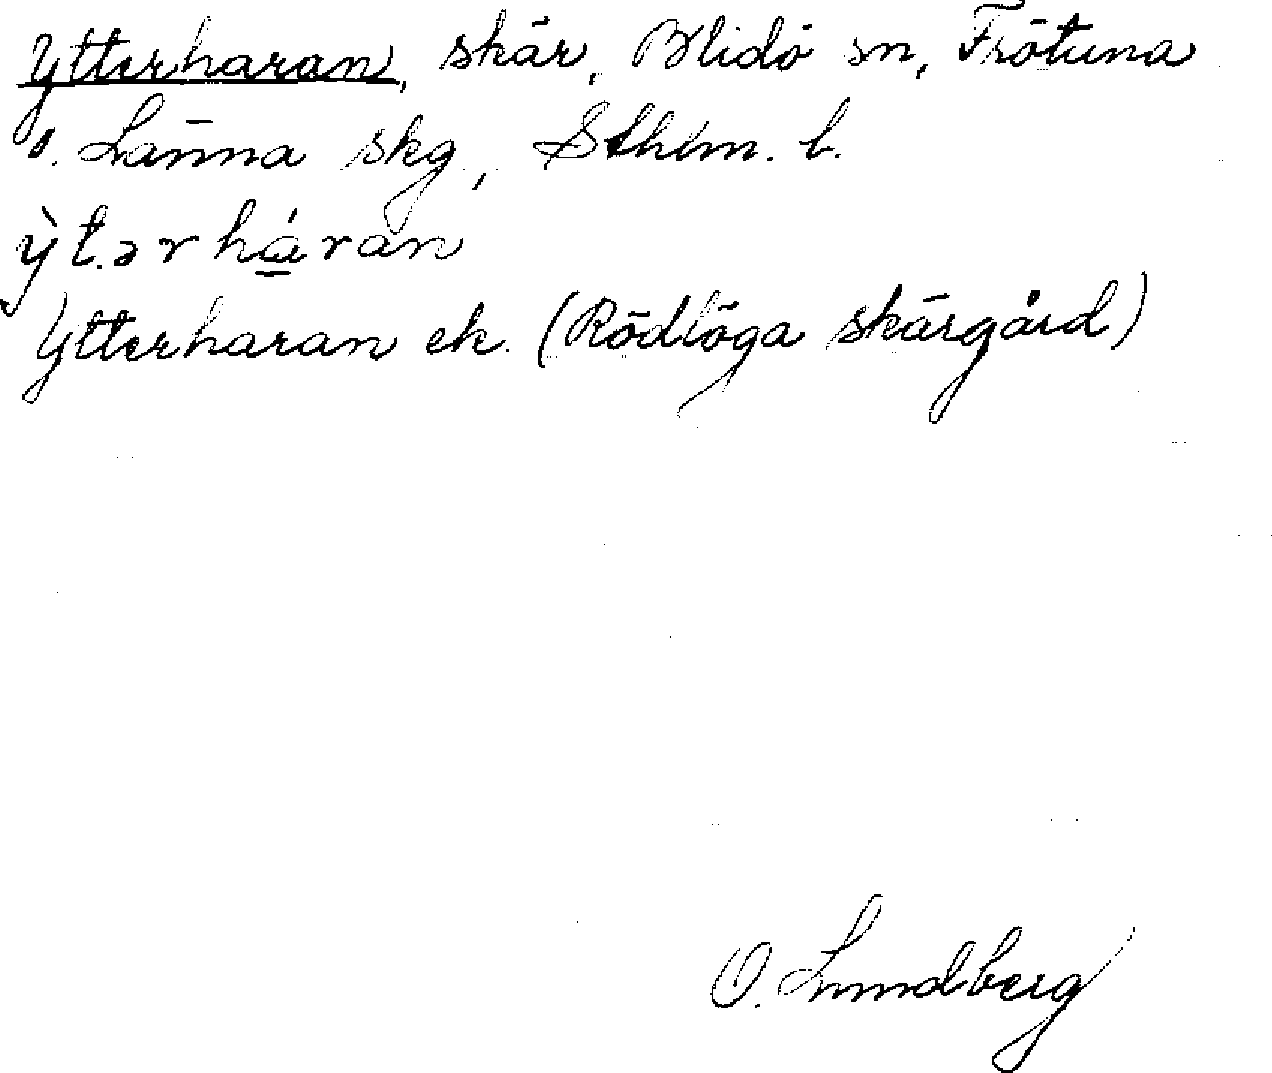 Ytterharan, skär, Blidö sn, Frötuna
o. Länna skg, Sthlm. l.
ỳt.ərháran
Ytterharan ek. (Rödlöga skärgård)
O. Lundberg